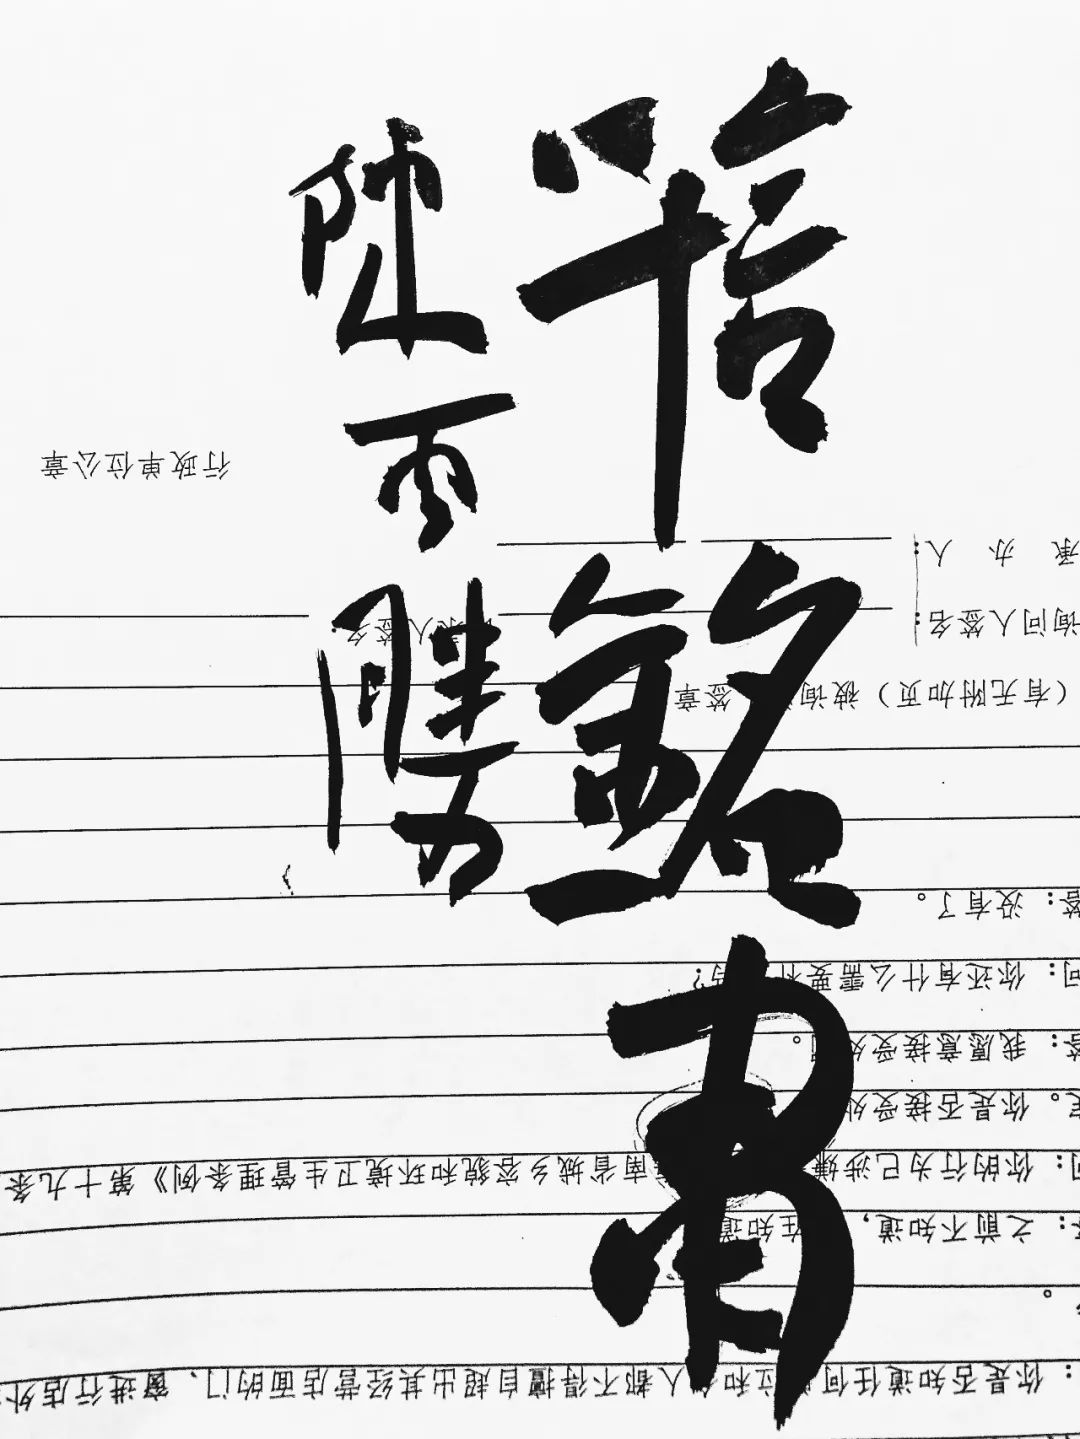 銘
陳雨勝
：你是否知道任何单位和个人都不得擅自超出其经营店面的门、窗进行店外
：之前不知道，现在知道
问：你的行为已涉嫌南省城乡容貌和环境卫生管理条例》第十九条
定。你是否接受处
答：我愿意接受处罚。
问：你还有什么需要补充的？
答：没有了。
（有无附加页）被询问人签章
询问人签名：
承办人：
行政单位公章